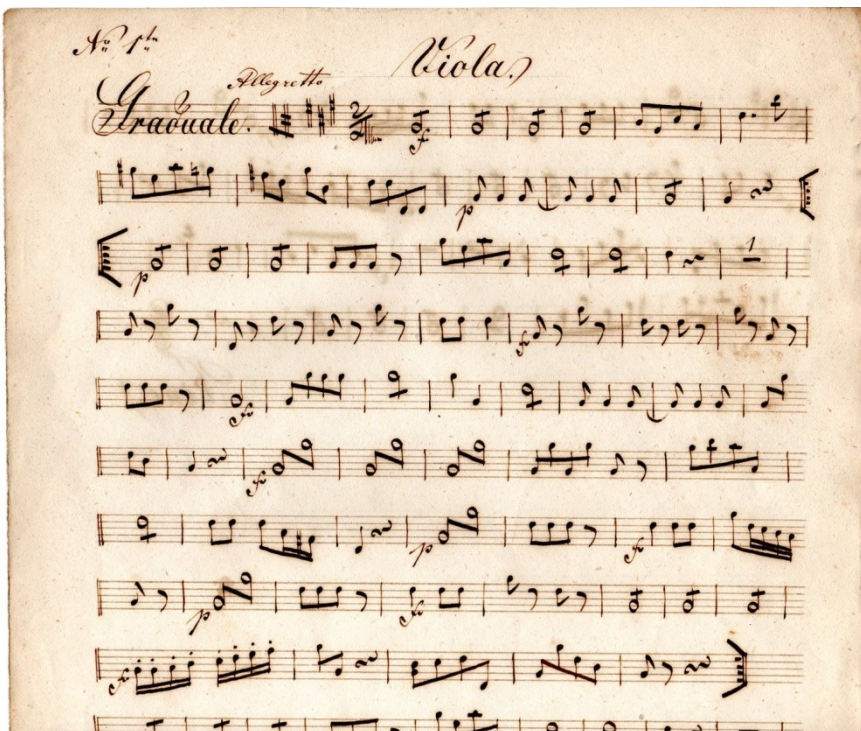 No 1te
Viola.
Allegretto
Graduale.
2
f
p
p
1
f
f
f
p
f
p
f
f